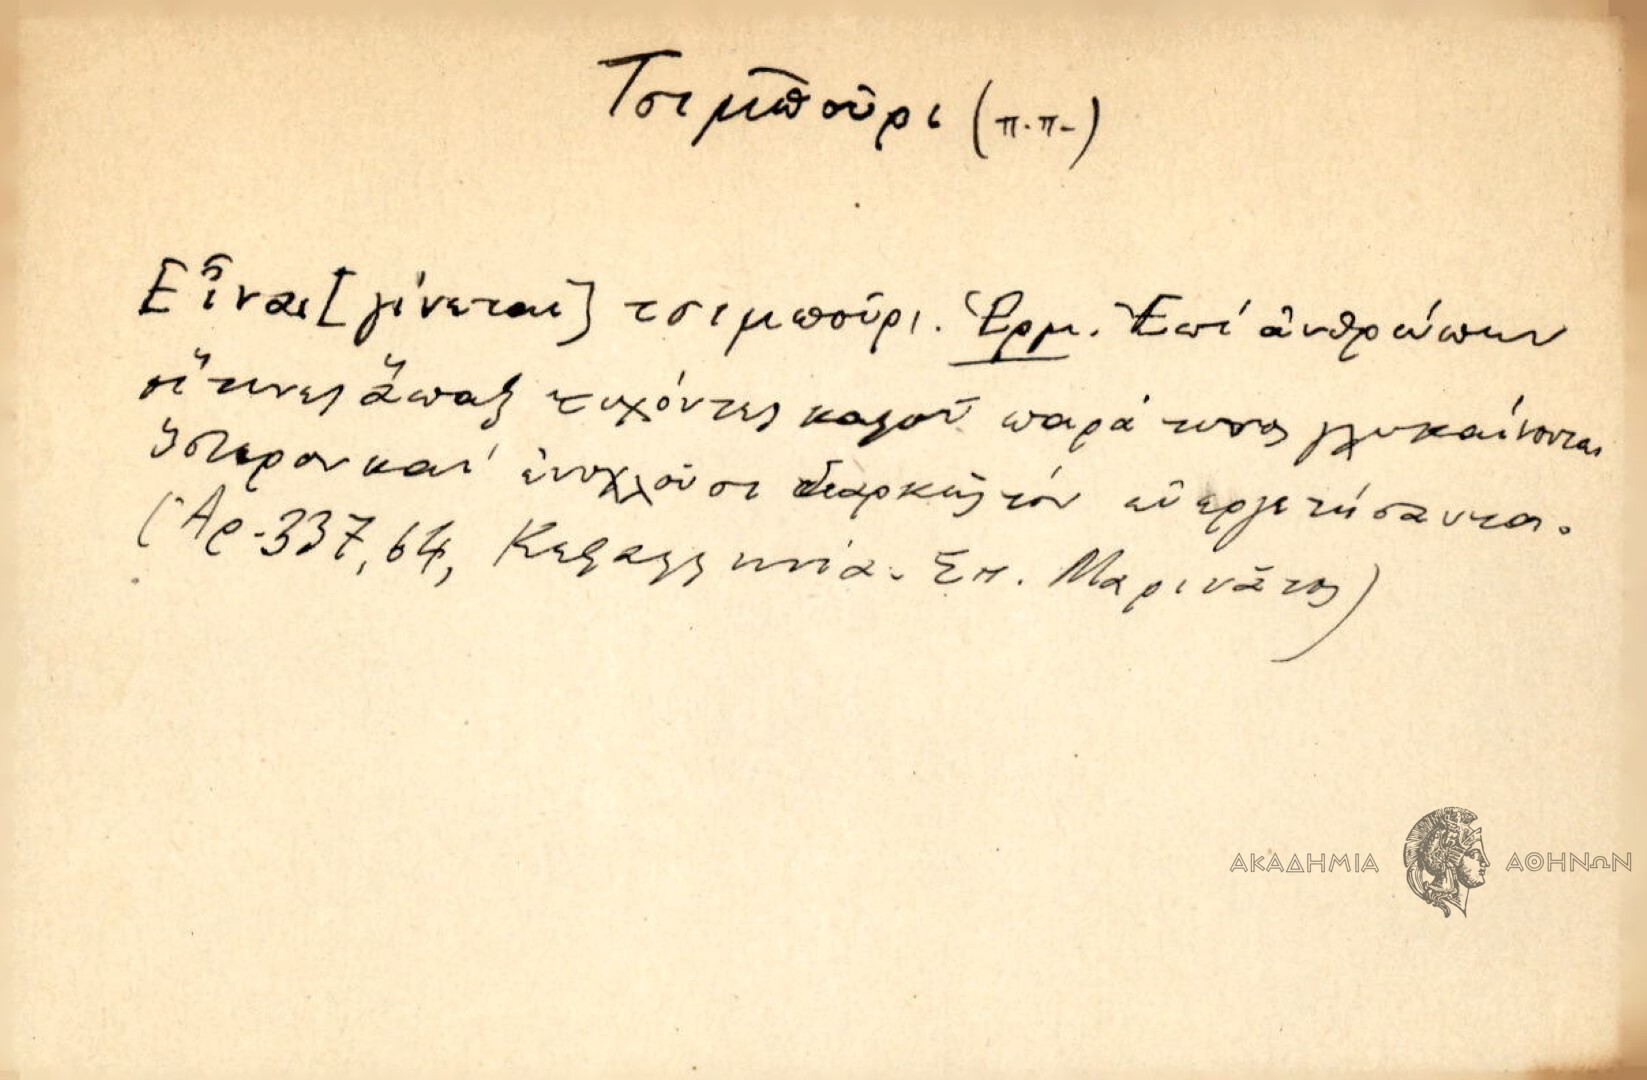 Τσιμποῦρι (π.π.)
Εἶναι [γίνεται] τσιμποῦρι. Ἑρμ. Ἐπί ἀνθρώπων
οἵτινες ἅπαξ τυχόντες καλοῦ παρά τινος γλυκαίνονται
ὕστερον καί ἐνοχλοῦσι διαρκῶς τόν εὐεργετήσαντα.
(Ἀρ. 337, 64, Κεφαλληνία. Σπ. Μαρινᾶτος)
ΑΚΑΔΗΜΙΑ ΑΘΗΝΩΝ